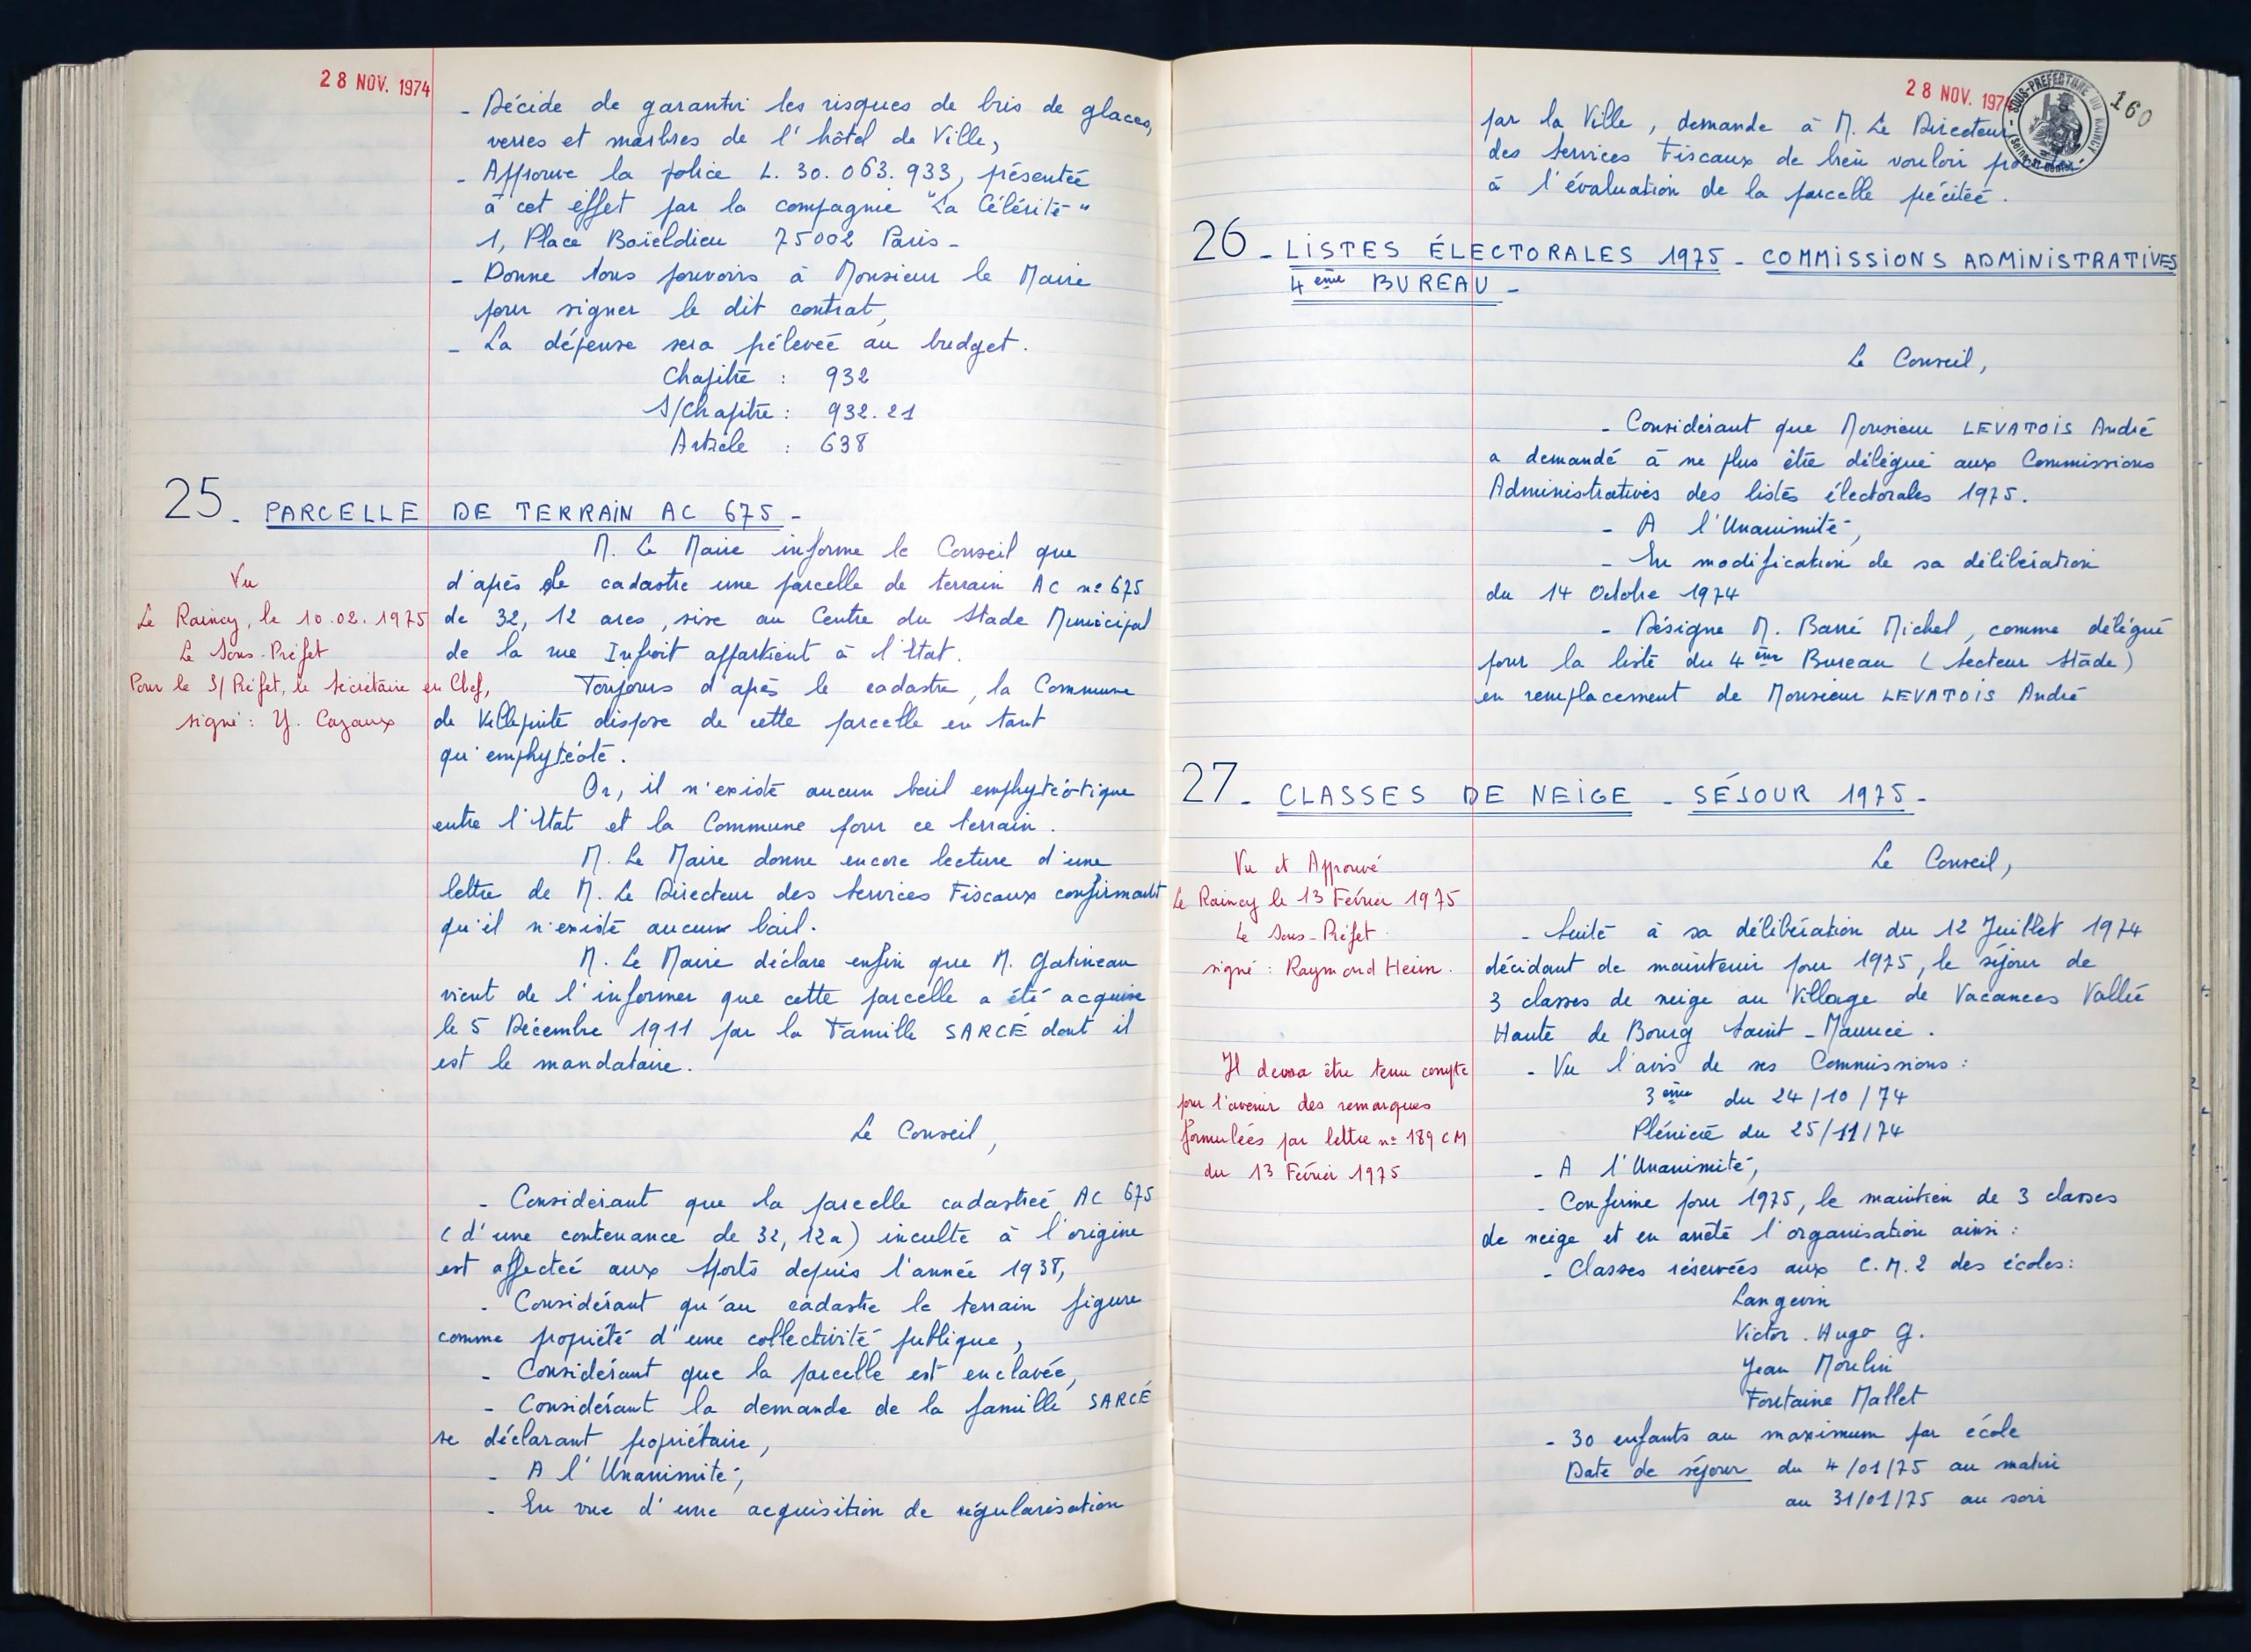 28 NOV. 1974
- Décide de garantir les risques de bris de glaces,
verres et marbres de l'hôtel de Ville,
- Approuve la police L. 30. 063. 933, présentée
à cet effet par la compagnie "La Célérité"
1, Place Boïeldieu 75002 Paris -
- Donne tous pouvoirs à Monsieur le Maire
pour signer le dit contrat,
- La dépense sera prélevée au budget.
Chapitre : 932
S/Chapitre : 932.21
Article : 638
25 - PARCELLE DE TERRAIN AC 675 -
M. Le Maire informe le Conseil que
d'après le cadastre une parcelle de terrain AC n° 675
de 32, 12 ares, sise au Centre du Stade Municipal
de la rue Infroit appartient à l'Etat.
Toujours d'après le cadastre, la Commune
de Villepinte dispose de cette parcelle en tant
qu'emphytéote.
Or, il n'existe aucun bail emphytéotique
entre l'Etat et la Commune pour ce terrain.
M. Le Maire donne encore lecture d'une
lettre de M. Le Directeur des Services Fiscaux confirmant
qu'il n'existe aucun bail.
M. Le Maire déclare enfin que M. Gatineau
vient de l'informer que cette parcelle a été acquise
le 5 Décembre 1911 par la Famille SARCÉ dont il
est le mandataire.
Vu
Le Raincy, le 10.02.1975
Le Sous-Préfet
Pour le S/Préfet, le Secrétaire en Chef,
signé : Y. Cazaux
Le Conseil,
- Considérant que la parcelle cadastrée AC 675
(d'une contenance de 32, 12a) inculte à l'origine
est affectée aux Sports depuis l'année 1938,
- Considérant qu'au cadastre le terrain figure
comme propriété d'une collectivité publique,
- Considérant que la parcelle est enclavée,
- Considérant la demande de la famille SARCÉ
se déclarant propriétaire,
- A l'Unanimité,
- En vue d'une acquisition de régularisation
28 NOV. 197
SOUS-PREFECTURE DU RAINCY
160
par la Ville, demande à M. Le Directeur
des Services Fiscaux de bien vouloir procéder
à l'évaluation de la parcelle précitée.
26 - LISTES ÉLECTORALES 1975 - COMMISSIONS ADMINISTRATIVES
4ème BUREAU -
Le Conseil,
- Considérant que Monsieur LEVATOIS André
a demandé à ne plus être délégué aux Commissions
Administratives des listes électorales 1975.
- A l'Unanimité,
- En modification de sa délibération
du 14 Octobre 1974
- Désigne M. Barré Michel, comme délégué
pour la liste du 4ème Bureau (Secteur Stade)
en remplacement de Monsieur LEVATOIS André
27 - CLASSES DE NEIGE - SÉJOUR 1975 -
Le Conseil,
- Suite à sa délibération du 12 Juillet 1974
décidant de maintenir pour 1975, le séjour de
3 classes de neige au Village de Vacances Vallée
Haute de Bourg Saint-Maurice.
- Vu l'avis de ses Commissions :
3ème du 24/10/74
Plénière du 25/11/74
- A l'Unanimité,
- Confirme pour 1975, le maintien de 3 classes
de neige et en arrête l'organisation ainsi :
- Classes réservées aux C.M.2 des écoles :
Langevin
Victor.Hugo G.
Jean Moulin
Fontaine Mallet
- 30 enfants au maximum par école
Date de séjour du 4/01/75 au matin
au 31/01/75 au soir
Vu et Approuvé
Le Raincy le 13 Février 1975
Le Sous-Préfet
signé : Raymond Heim.
Il devra être tenu compte
pour l'avenir des remarques
formulées par lettre n° 189 CM
du 13 Février 1975